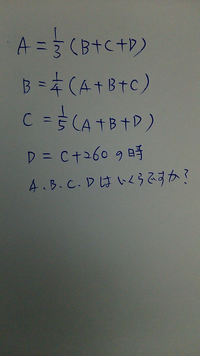 A = 1/3 (B+C+D)
B = 1/4 (A+B+C)
C = 1/5 (A+B+D)
D = C+260の時
A.B.C.Dはいくらですか?